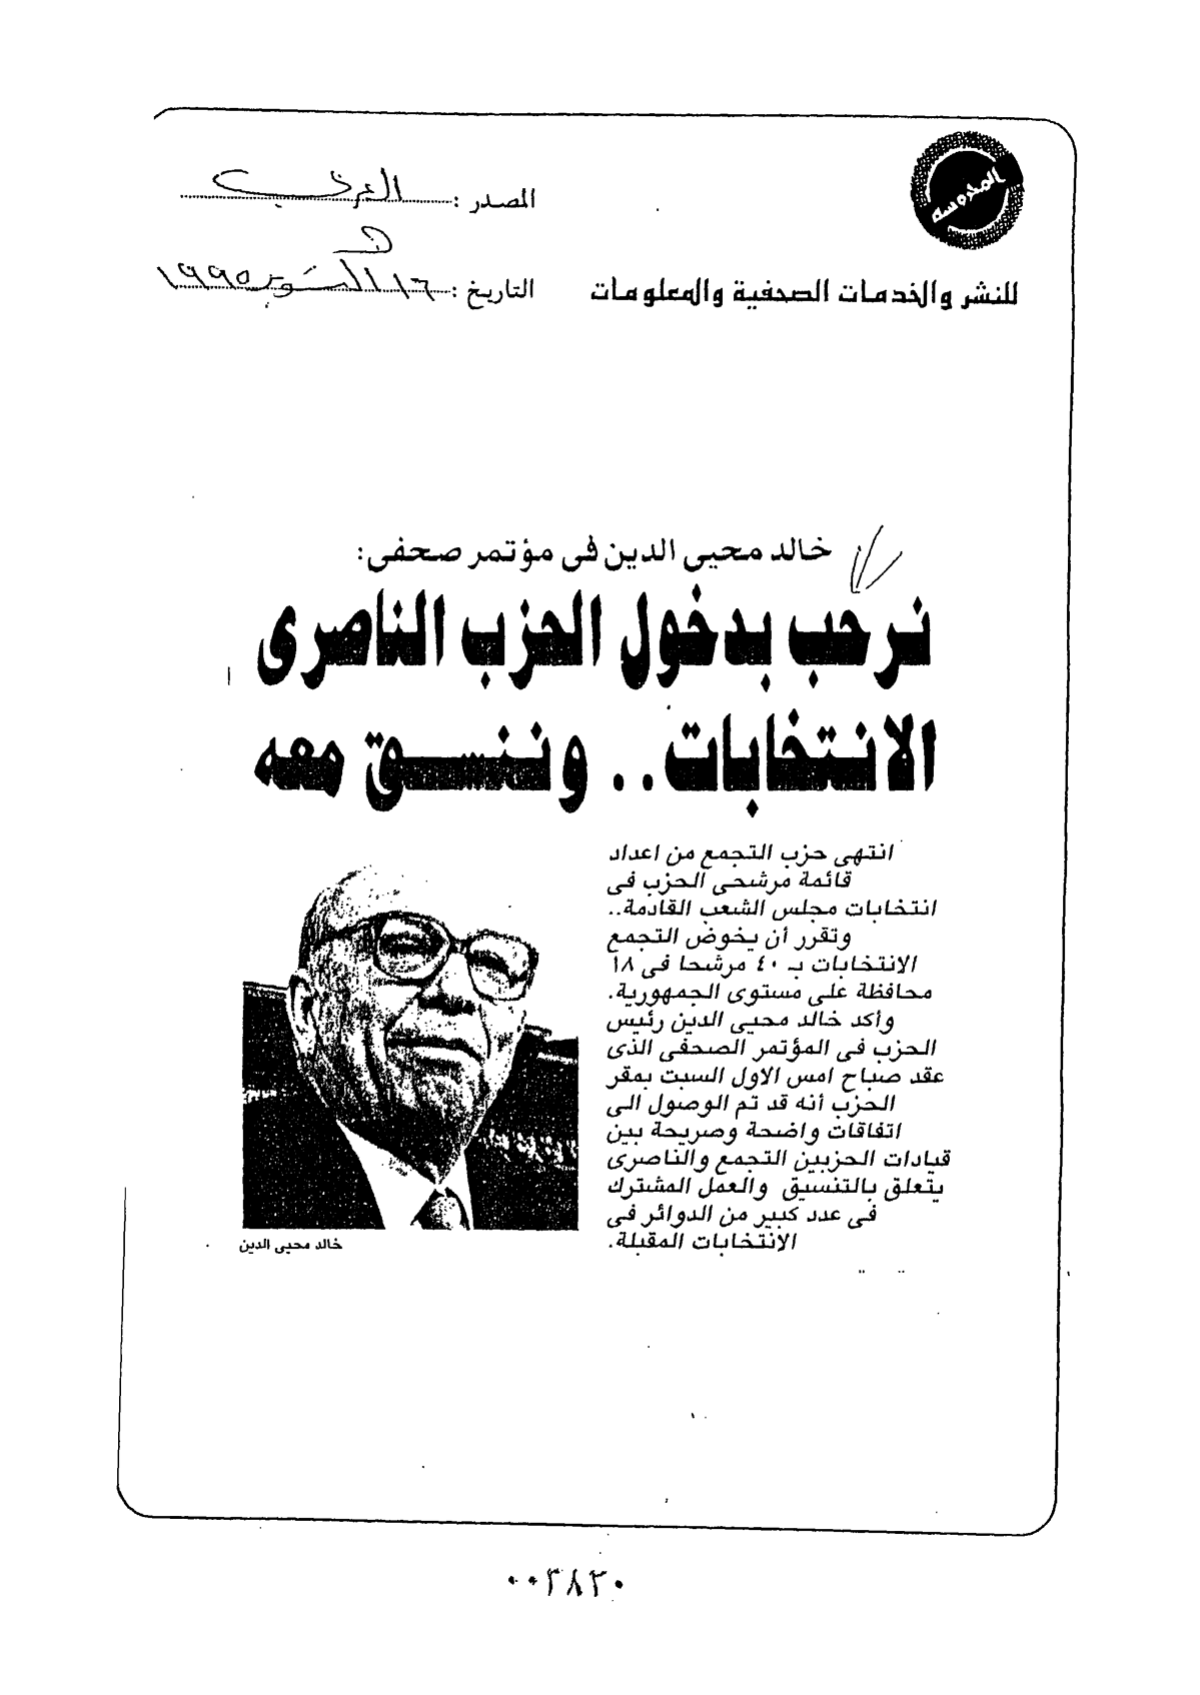 المحروسة
المصدر : العربى
للنشر والخدمات الصحفية والمعلومات
التاريخ : ١٦ أكتوبر ١٩٩٥
خالد محيى الدين فى مؤتمر صحفى:
نرحب بدخول الحزب الناصرى
الانتخابات.. وننسق معه
انتهى حزب التجمع من اعداد
قائمة مرشحى الحزب فى
انتخابات مجلس الشعب القادمة..
وتقرر أن يخوض التجمع
الانتخابات بـ ٤٠ مرشحا فى ١٨
محافظة على مستوى الجمهورية.
وأكد خالد محيى الدين رئيس
الحزب فى المؤتمر الصحفى الذى
عقد صباح امس الاول السبت بمقر
الحزب أنه قد تم الوصول الى
اتفاقات واضحة وصريحة بين
قيادات الحزبين التجمع والناصرى
يتعلق بالتنسيق والعمل المشترك
فى عدد كبير من الدوائر فى
الانتخابات المقبلة.
خالد محيى الدين
٠٠٣٨٢٠